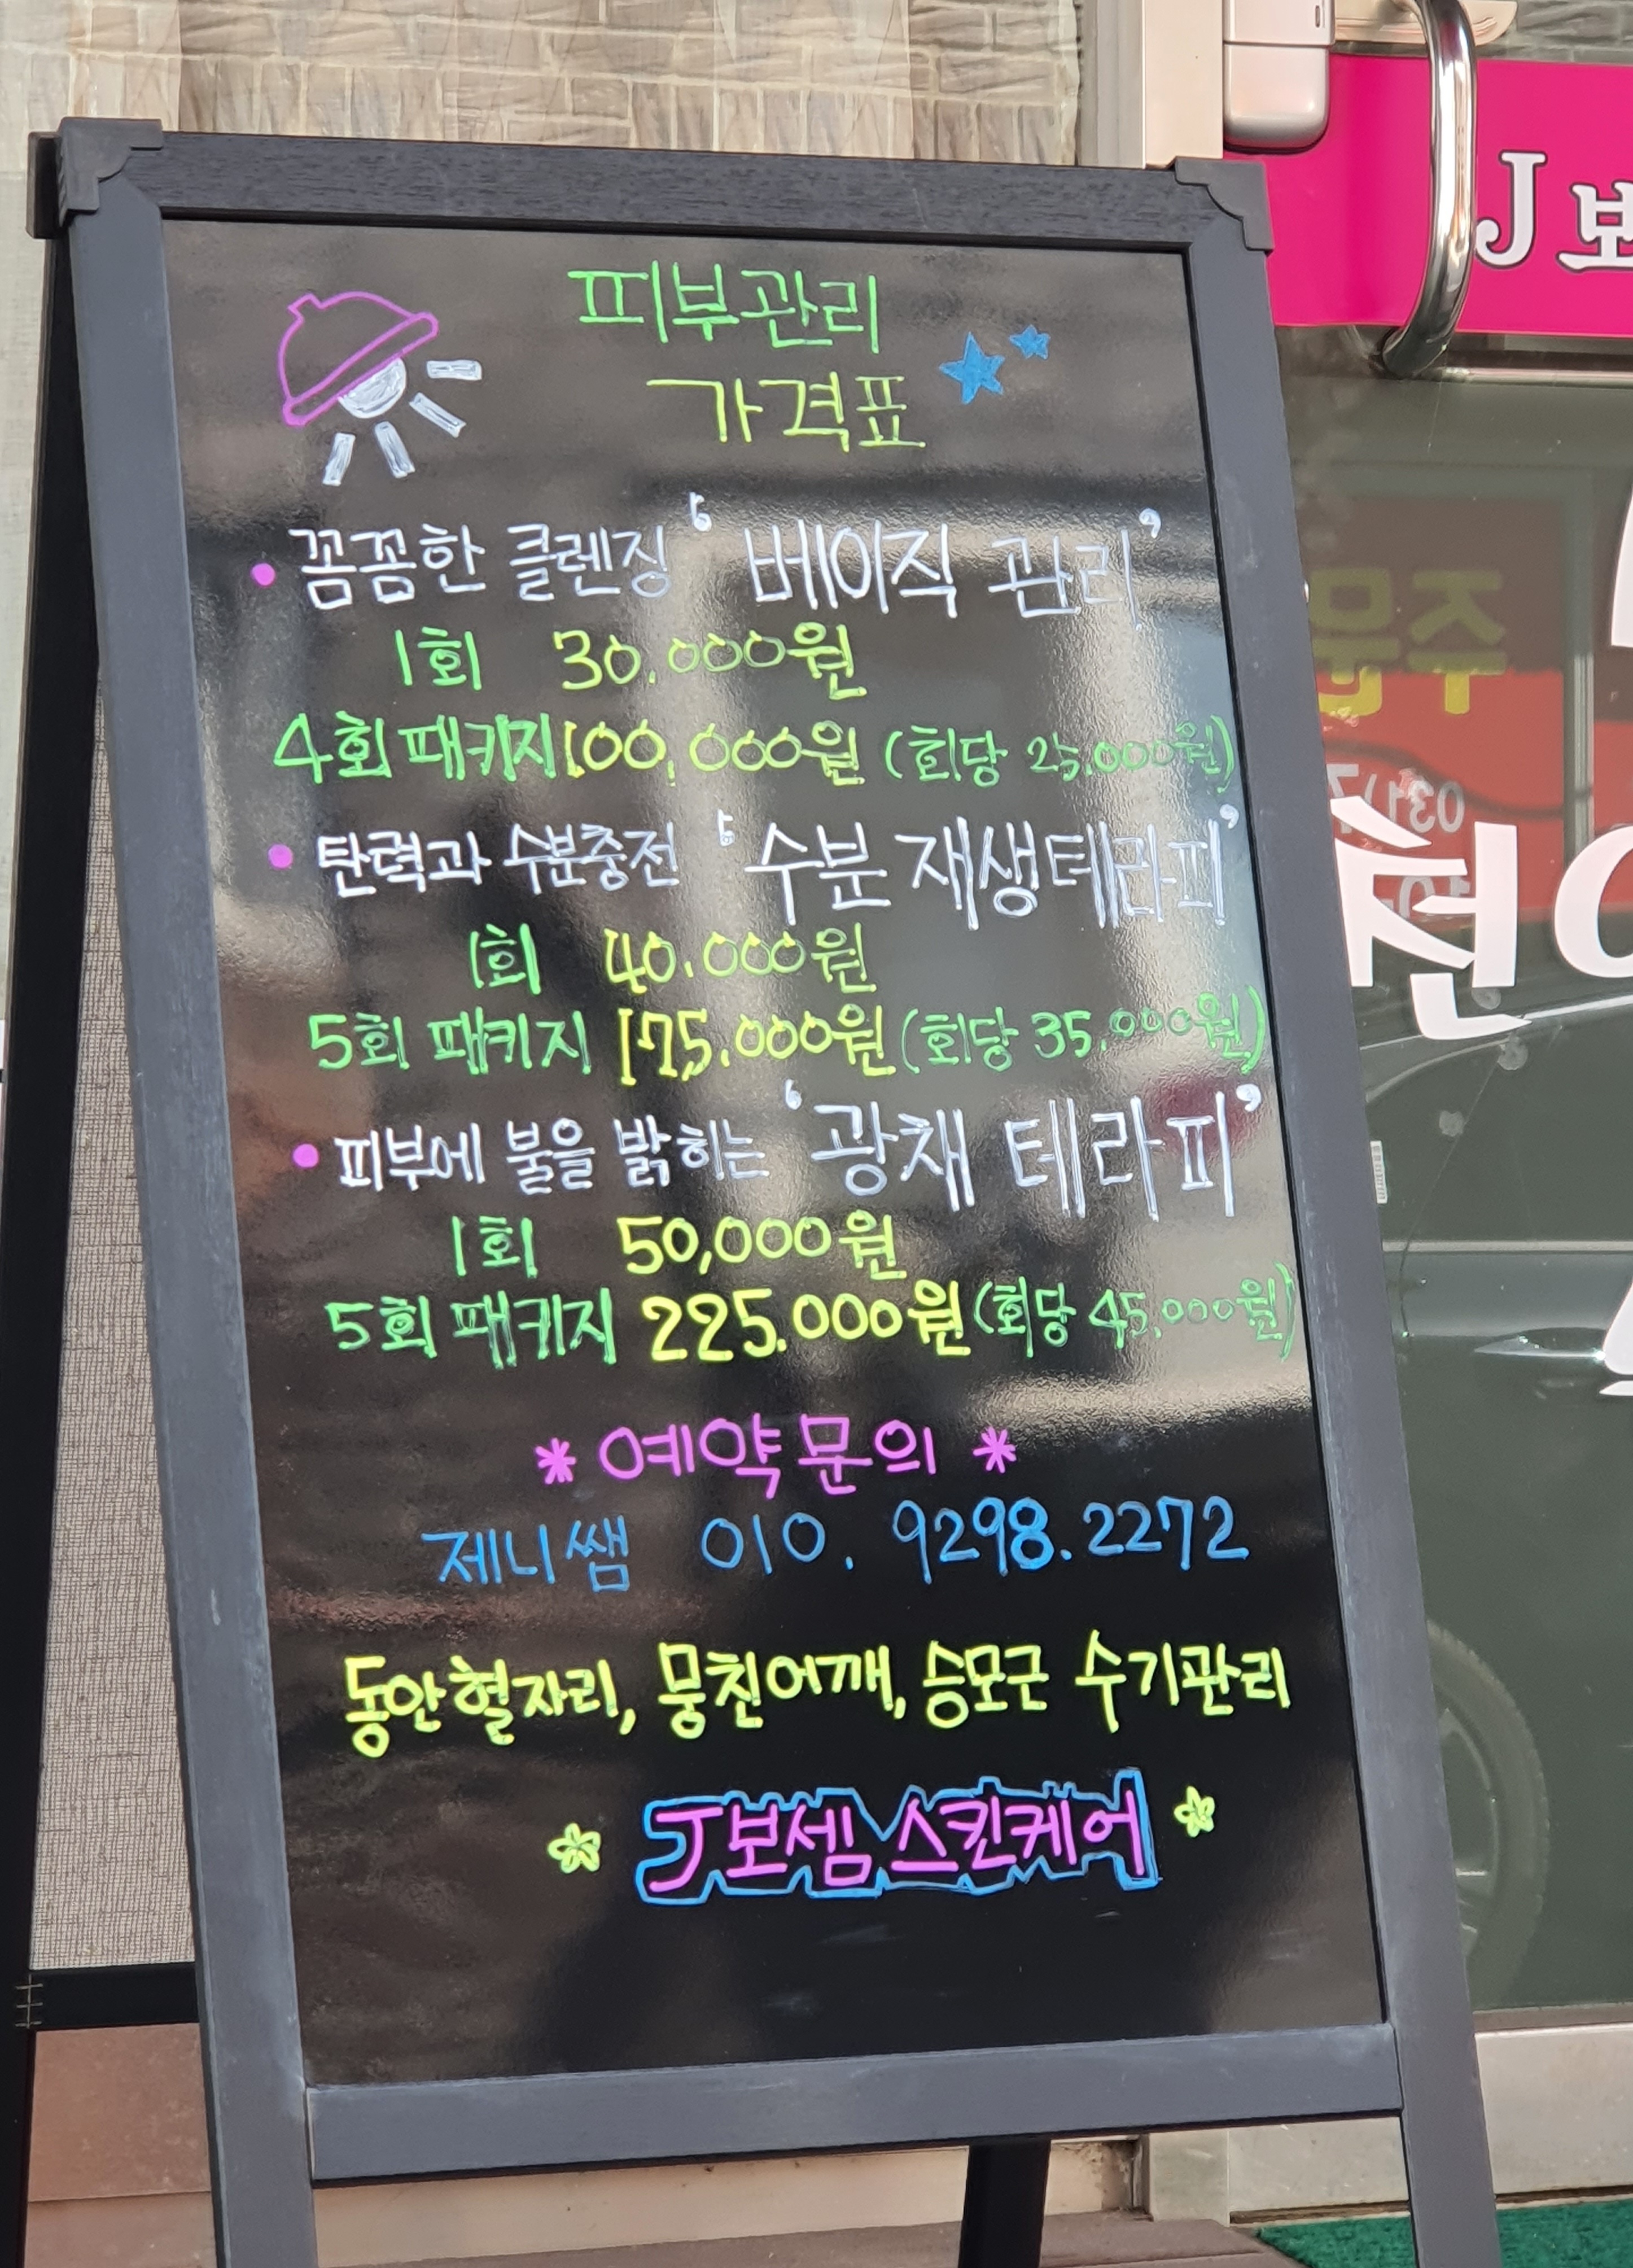 피부관리
가격표
• 꼼꼼한 클렌징 ‘베이직 관리’
1회 30.000원
4회 패키지 100,000원 (회당 25.000원)
• 탄력과 수분충전 ‘수분 재생테라피’
1회 40.000원
5회 패키지 175.000원 (회당 35.000원)
• 피부에 불을 밝히는 ‘광채 테라피’
1회 50,000원
5회 패키지 225.000원 (회당 45.000원)
* 예약문의 *
제니쌤 010. 9298.2272
동안혈자리, 뭉친어깨, 승모근 수기관리
J보셈 스킨케어
J 보
천
주문
031)7